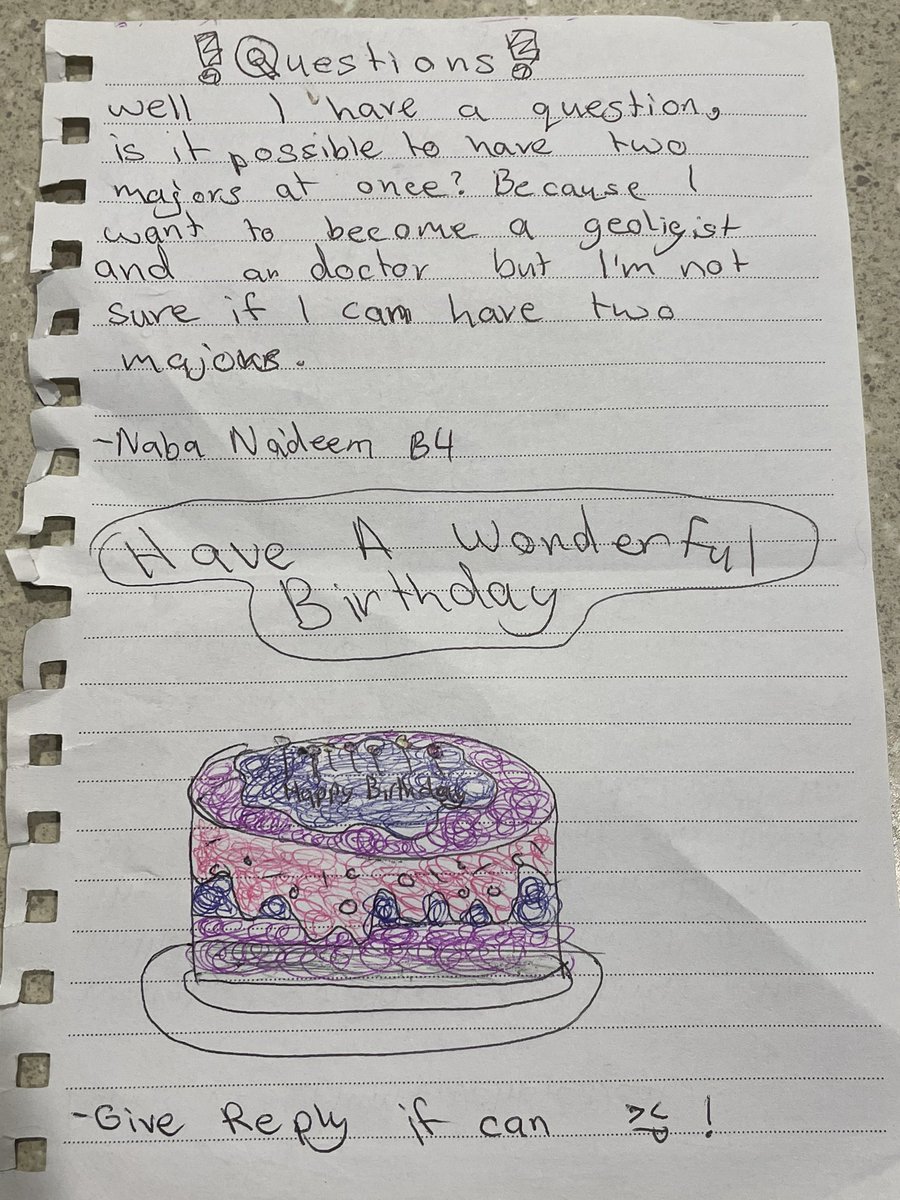 !Questions!
well I have a question,
is it possible to have two
majors at once? Because I
want to become a geoligist
and an doctor but I'm not
sure if I can have two
majors.
-Naba Nadeem B4
Have A Wonderful
Birthday
Happy Birthday
-Give Reply if can !